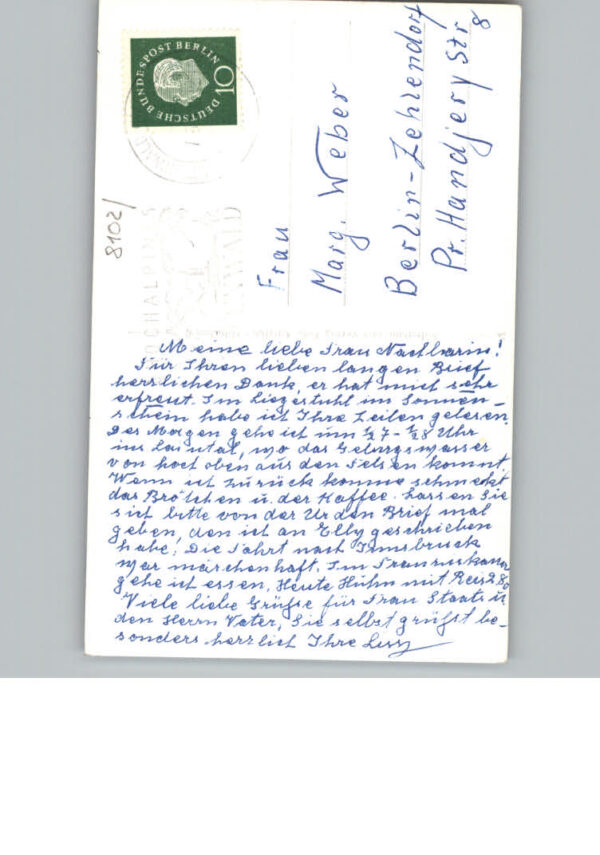 DEUTSCHE BUNDESPOST BERLIN
10
8102/
HOCHALPINES
Frau
Marg. Weber
Berlin-Zehlendorf
Pr. Handjery Str
8
Meine liebe Frau Nachbarin!
Für Ihren lieben langen Brief
herzlichen Dank, er hat mich sehr
erfreut. Im Liegestuhl im Sonnen-
schein habe ich Ihre Zeilen gelesen.
Des Morgen gehe ich um ½7-½8 Uhr
ins wo das Gebirgswasser
von hoch oben aus den Felsen kommt.
Wenn ich zurück komme schmeckt
das Brötchen u. der Kaffee. Lassen Sie
sich bitte von der den Brief mal
geben, den ich an Elly geschrieben
habe. Die Fahrt nach Innsbruck
war märchenhaft. Im
gehe ich essen, Heute Huhn mit Reis 2.80
Viele liebe Grüße für Frau Staats u
den Herrn Vater, Sie selbst grüßt be-
sonders herzlich Ihre